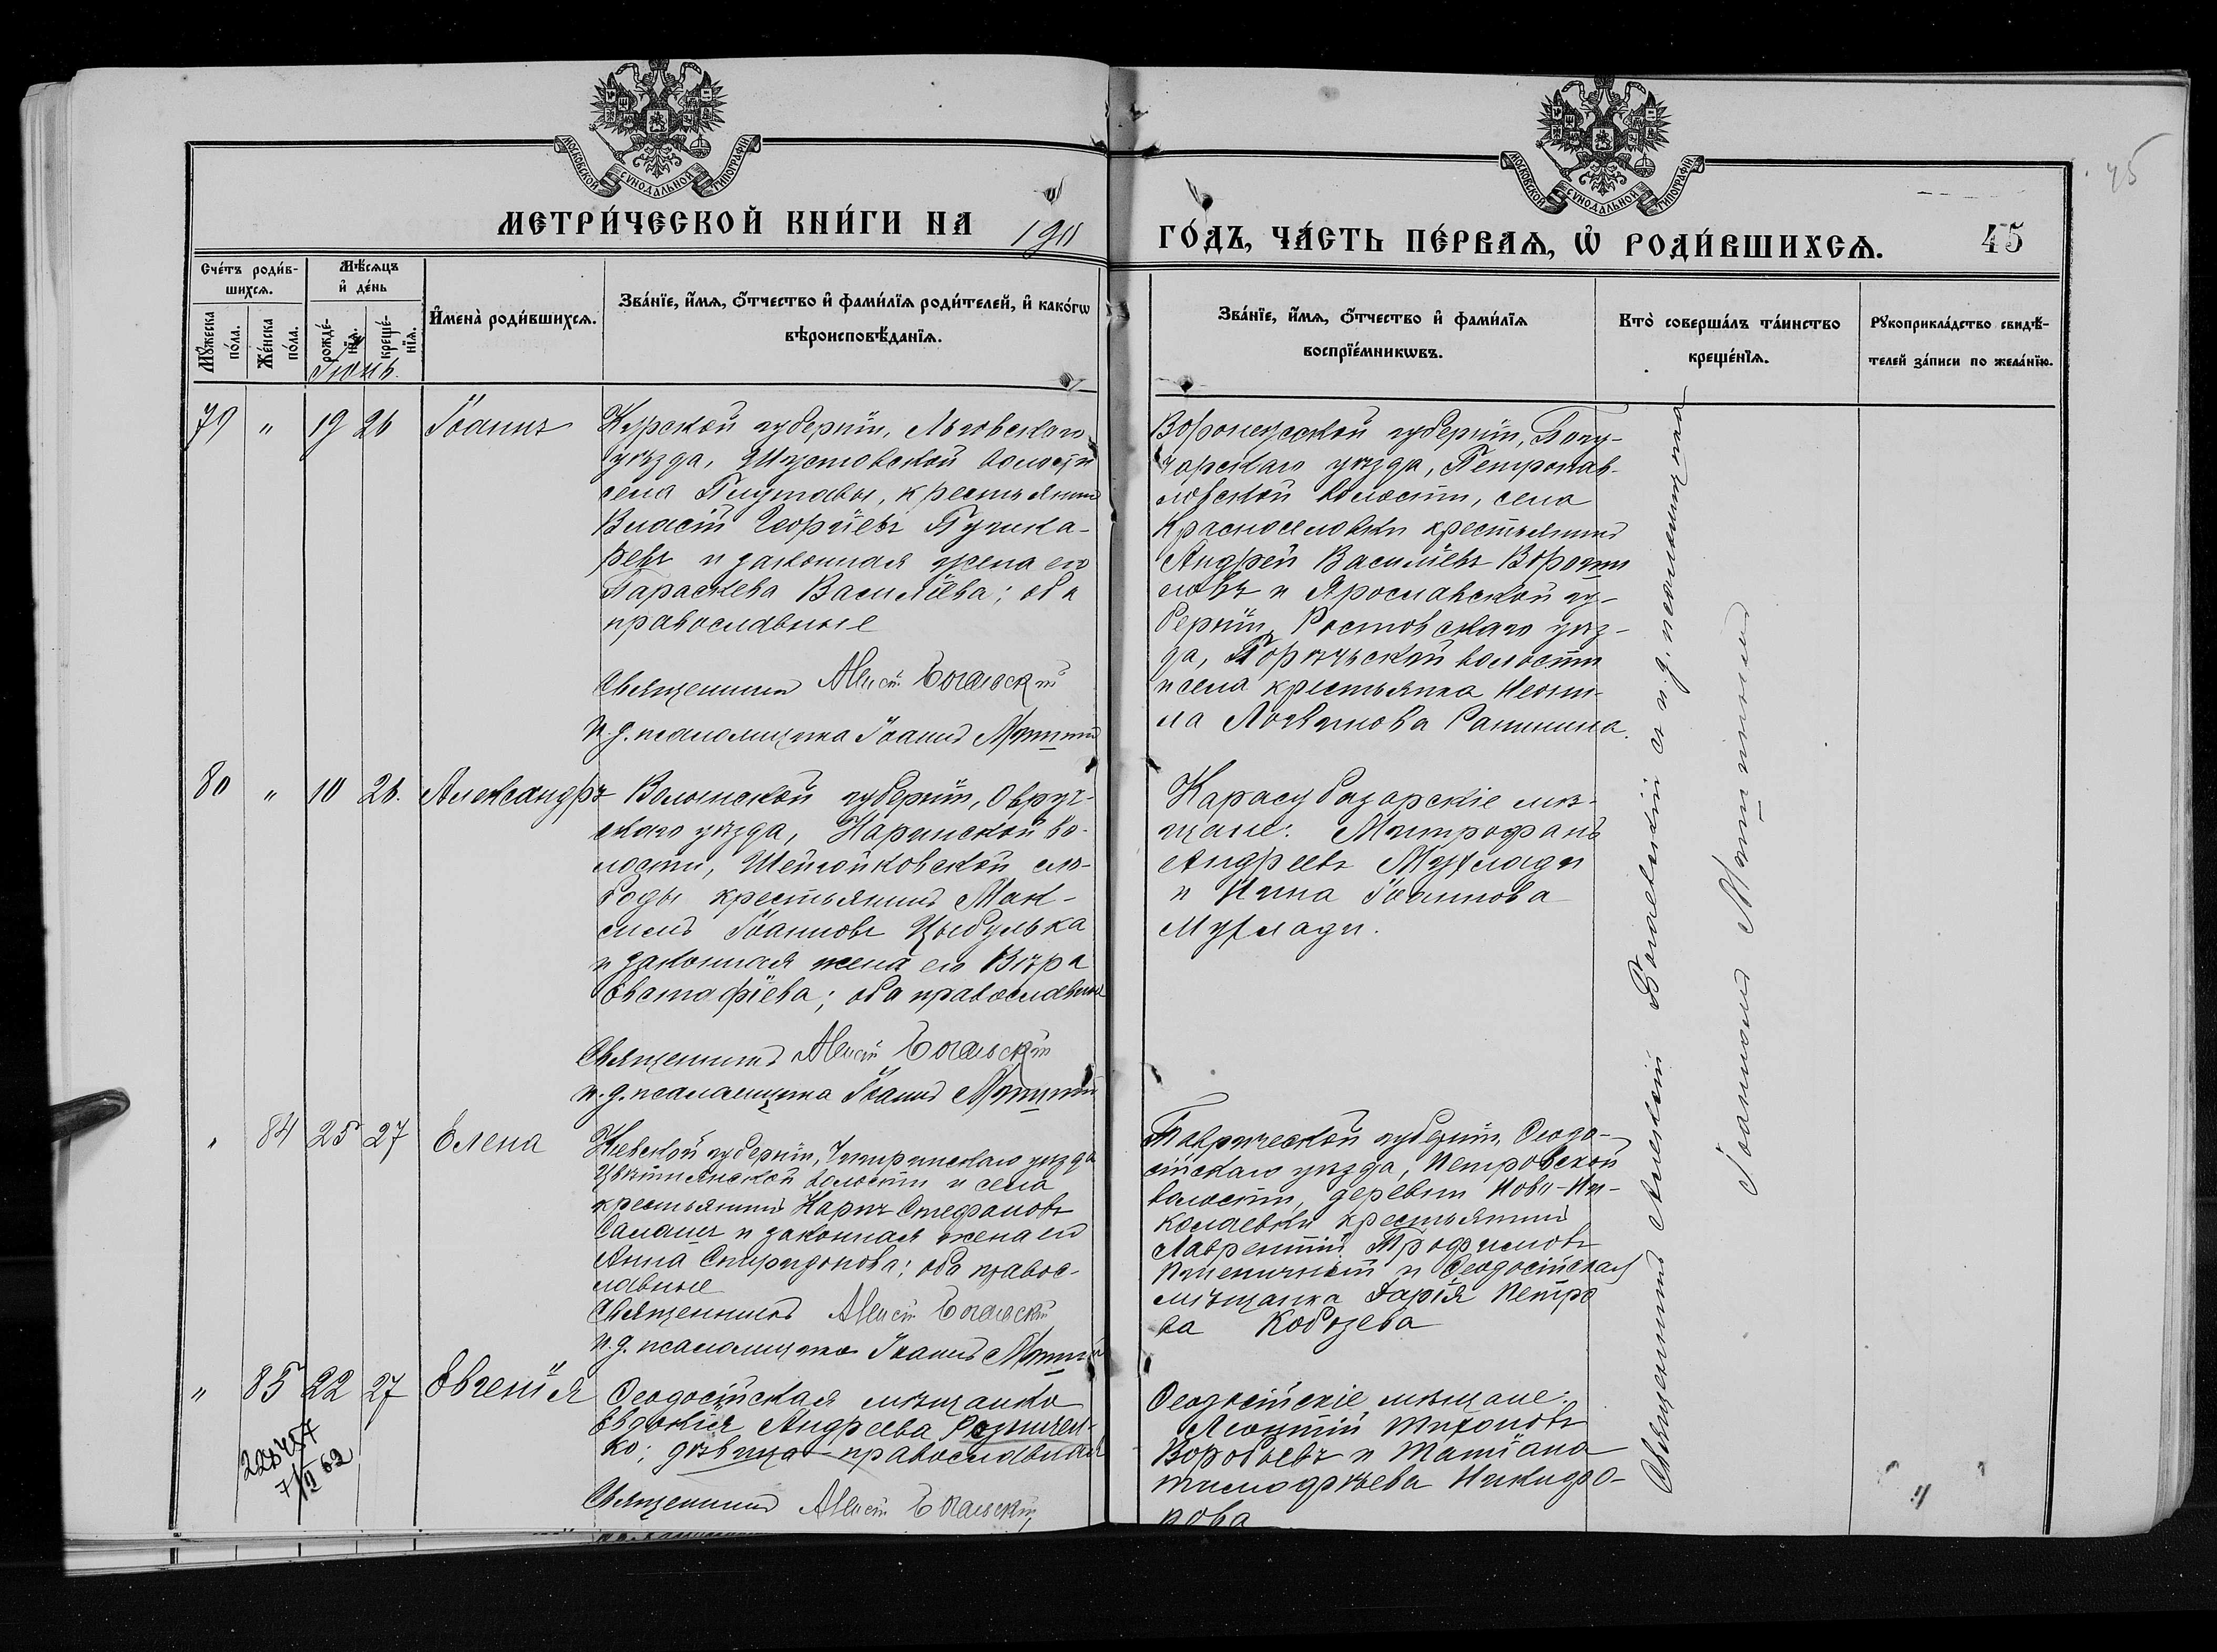 МОСКОВСКОЙ СѴНОДАЛЬНОЙ ТИПОГРАФІИ
МОСКОВСКОЙ СѴНОДАЛЬНОЙ ТИПОГРАФІИ
45
МЕТРИ́ЧЕСКОЙ КНИ́ГИ НА 1911
ГО́ДЪ, ЧА́СТЬ ПЕ́РВАѦ, Ѡ҆ РОДИ́ВШИХСѦ. 45
Сче́тъ роди́в-
шихсѧ.
Мꙋ́жеска по́ла.
Же́нска по́ла.
Мѣ́сѧцъ
и҆ де́нь
рожде́-нїѧ.
креще́-нїѧ.
Іюнь.
И҆мена̀ роди́вшихсѧ.
Зва́нїе, и҆́мѧ, ѻ҆́тчество и҆ фами́лїѧ роди́телей, и҆ како́гѡ
вѣроисповѣ́данїѧ.
Зва́нїе, и҆́мѧ, ѻ҆́тчество и҆ фами́лїѧ
воспрїе́мникѡвъ.
Кто̀ соверша́лъ та́инство
креще́нїѧ.
Рꙋкоприкла́дство свидѣ́-
телей за́писи по жела́нїю.
79 " 19 26 Іоаннъ
Курской губерніи, Льговскаго
уѣзда, Шустовской волости
села Плутавы, крестьянинъ
Власій Георгіевъ Пушка-
ревъ и законная жена его
Параскева Васильева; оба
православные
Священникъ Алексій Богаевскій
и. д. псаломщика Іоаннъ
Воронежской губерніи, Богу-
чарскаго уѣзда, Петропав-
ловской волости, села
Красноселовки крестьянинъ
Андрей Васильевъ Вороти
ловъ и Ярославской гу-
берніи, Ростовскаго уѣз-
да, Порѣчьской волости
и села крестьянка Неони-
ла Логгинова Ратнина.
80 " 10 26. Александръ
Волынской губерніи, Овруч-
скаго уѣзда, Наринской во-
лости, сло-
боды крестьянинъ Мак-
симъ Іоанновъ Цыбулька
и законная жена его Вѣра
Евстафіева; оба православные
Священникъ Алексій Богаевскій
и. д. псаломщика Іоаннъ
Карасубазарскіе мѣ-
щане: Митрофанъ
Андреевъ Мухлади
и Нина Іоаннова
Мухлади.
" 84 25 27 Елена
Кіевской губерніи, Чигиринскаго уѣзда
Цвѣтнянской волости и села
крестьянинъ Карпъ Стефановъ
Саланъ и законная жена его
Анна Спиридонова; оба правос-
лавные
Священникъ Алексій Богаевскій
и. д. псаломщика Іоаннъ
Таврической губерніи, Ѳеодо-
сійскаго уѣзда, Петровской
волости, деревни Ново-Ни-
колаевки крестьянинъ
Лаврентій Трофимовъ
Пшеничный и Ѳеодосійская
мѣщанка Дарія Петро
ва Кобзева
" 85 22 27 Евгенія
Ѳеодосійская мѣщанка
Евдокія Андреева Розничен-
ко; дѣвица православная
Священникъ Алексій Богаевскій
7/II 62
Ѳеодосійскіе мѣщане:
Леонтій Тихоновъ
Воробьевъ и Татіана
Тимофѣева Никифо-
рова
Священникъ Алексій Богаевскій съ и. д. псаломщика
Іоанномъ